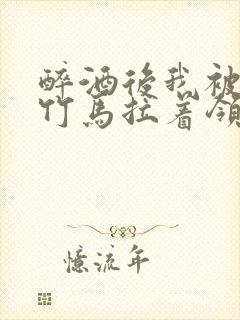 醉酒後我被
竹馬拉着領
憶流年